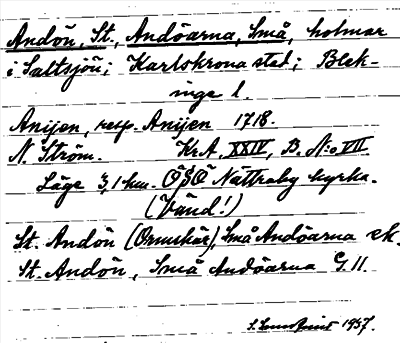 Andön, St., Andöarna, Små, holmar
i Saltsjön; Karlskrona stad; Blek-
inge l.
Anijen, resp. Anijen 1718.
N. Ström. Kr.A. XXIV, B. N:o VII
Läge 3,1 km. OSO Nättraby kyrka.
(Vänd!)
St. Andön (Ormskär), Små Andöarna ek.
St. Andön, Små Andöarna G. 11.
1937.